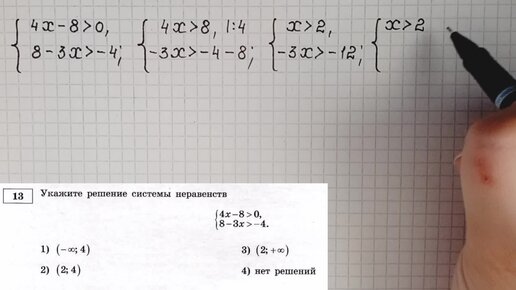 { 4x-8>0, { 4x>8, |:4 { x>2, { x>2
{ 8-3x>-4; { -3x>-4-8; { -3x>-12; {
13 Укажите решение системы неравенств
{4x-8>0,
{8-3x>-4.
1) (-∞; 4) 3) (2; +∞)
2) (2; 4) 4) нет решений